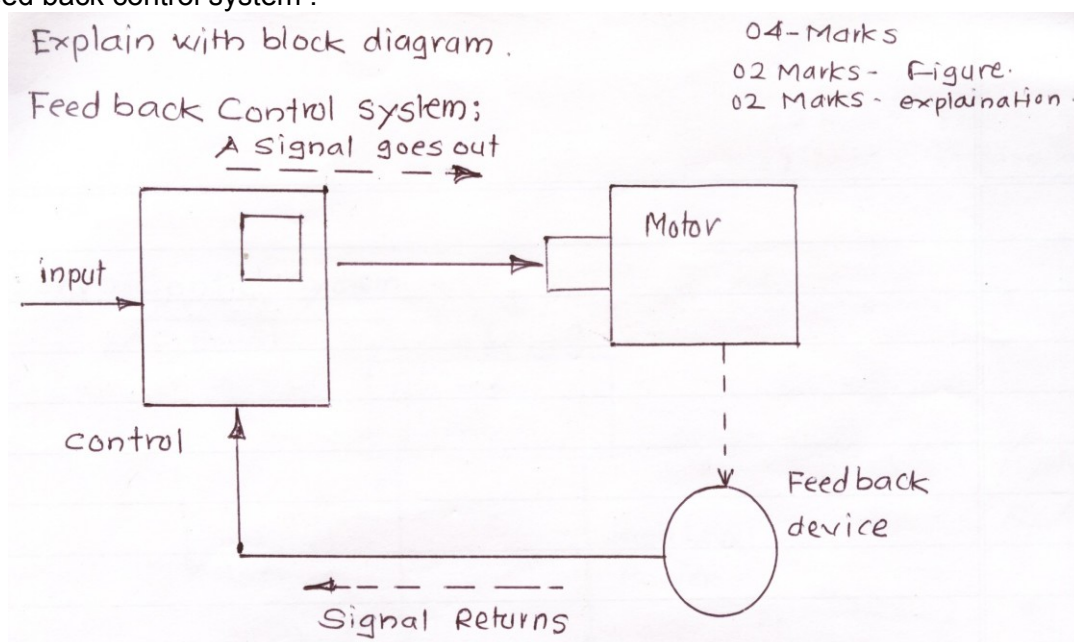 ed back control system :
Explain with block diagram.
04-Marks
02 Marks- Figure.
02 Marks - explaination.
Feed back Control system;
A Signal goes out
Motor
input
control
Feedback
device
Signal Returns